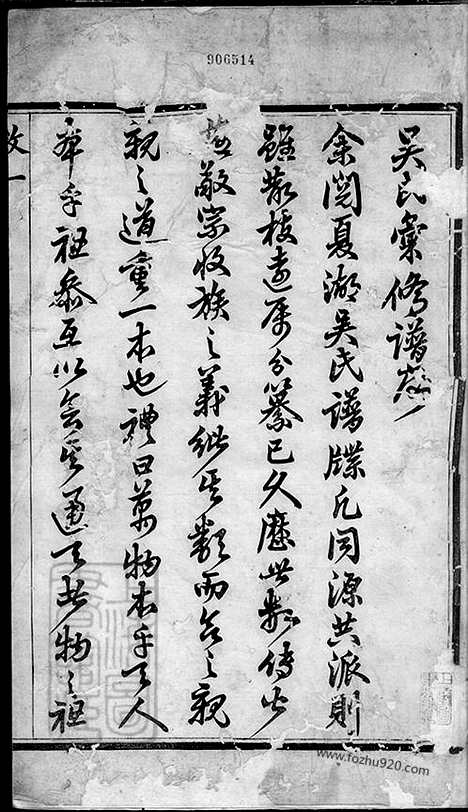 906514
吴氏彙修譜敘
余閱夏湖吴氏譜牒凡同源共派則
雖散枝遠房分纂已久歷世數傳必
敬宗收族之義继其類而合之親
親之道重一本也禮曰萬物本乎天人
本乎祖叅互以会其通天者物之祖
敘一
www.fozhu920.com